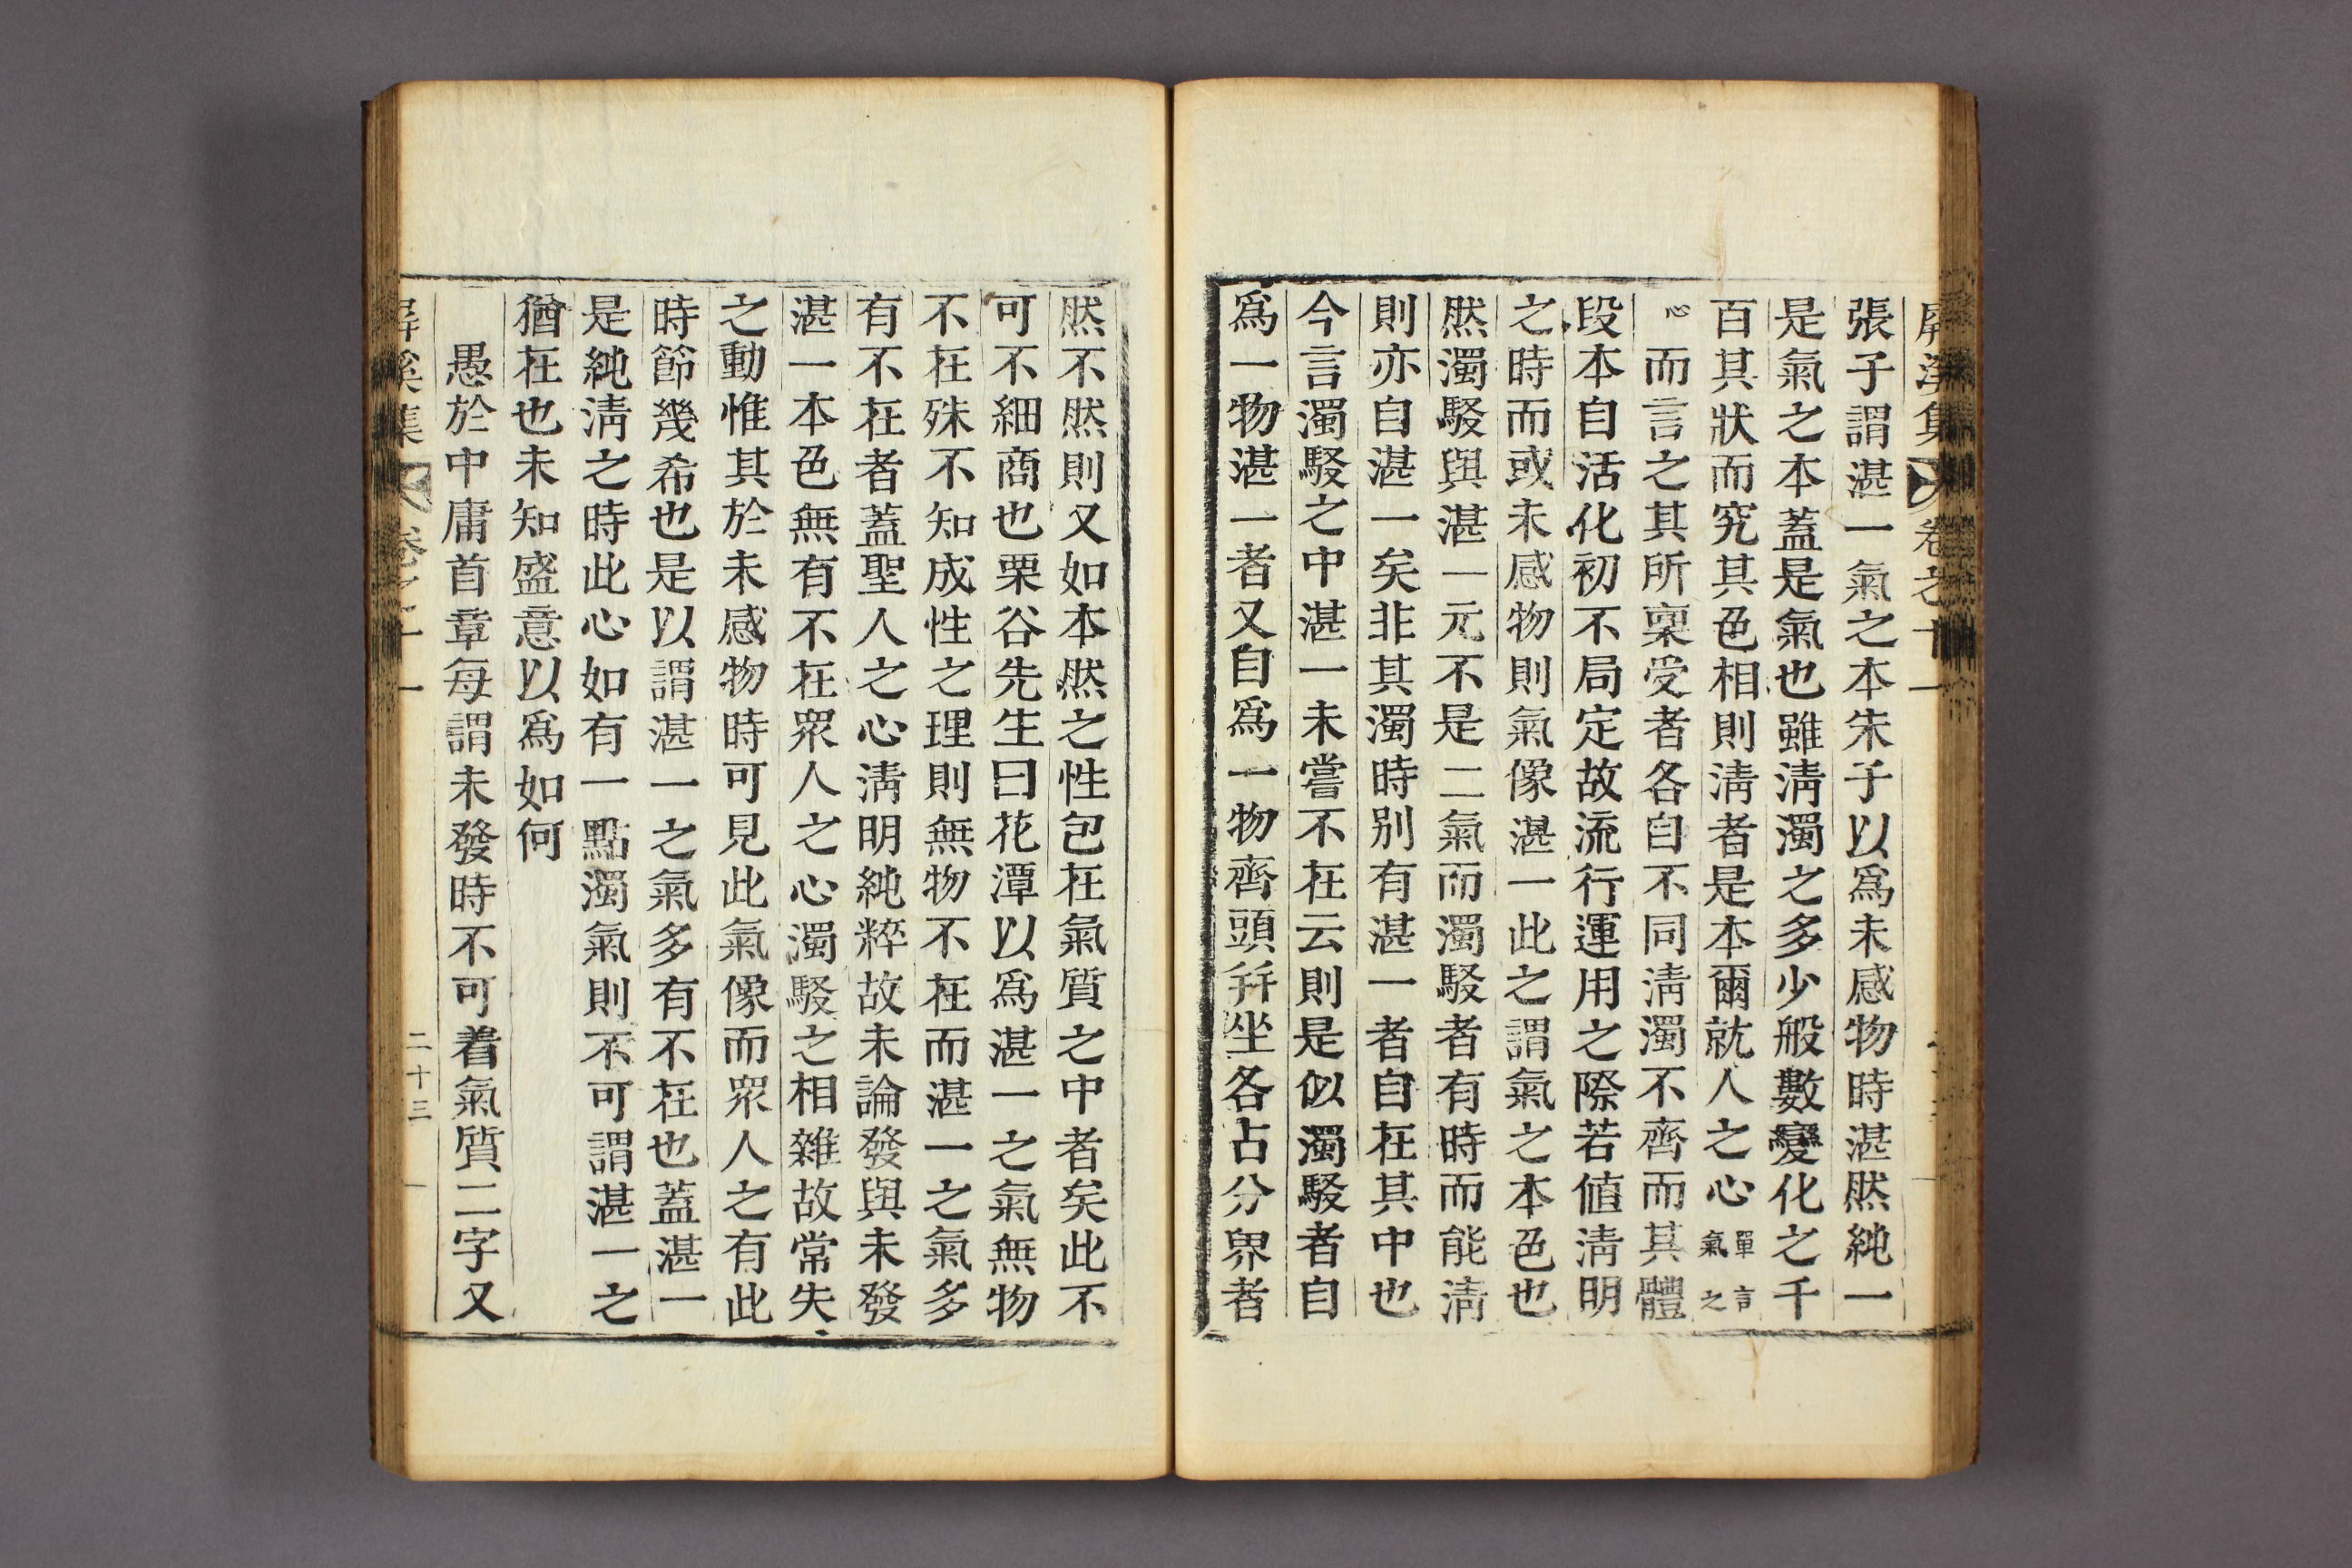 屛溪集 卷之十一
張子謂湛一氣之本朱子以爲未感物時湛然純一
是氣之本蓋是氣也雖淸濁之多少般數變化之千
百其狀而究其色相則淸者是本爾就人之心單言氣之
心而言之其所稟受者各自不同淸濁不齊而其體
段本自活化初不局定故流行運用之際若値淸明
之時而或未感物則氣像湛一此之謂氣之本色也
然濁駁與湛一元不是二氣而濁駁者有時而能淸
則亦自湛一矣非其濁時別有湛一者自在其中也
今言濁駁之中湛一未嘗不在云則是似濁駁者自
爲一物湛一者又自爲一物齊頭幷坐各占分界者
然不然則又如本然之性包在氣質之中者矣此不
可不細商也栗谷先生曰花潭以爲湛一之氣無物
不在殊不知成性之理則無物不在而湛一之氣多
有不在者蓋聖人之心淸明純粹故未論發與未發
湛一本色無有不在衆人之心濁駁之相雜故常失
之動惟其於未感物時可見此氣像而衆人之有此
時節幾希也是以謂湛一之氣多有不在也蓋湛一
是純淸之時此心如有一點濁氣則不可謂湛一之
猶在也未知盛意以爲如何
愚於中庸首章每謂未發時不可着氣質二字又
屛溪集 卷之十一 二十三